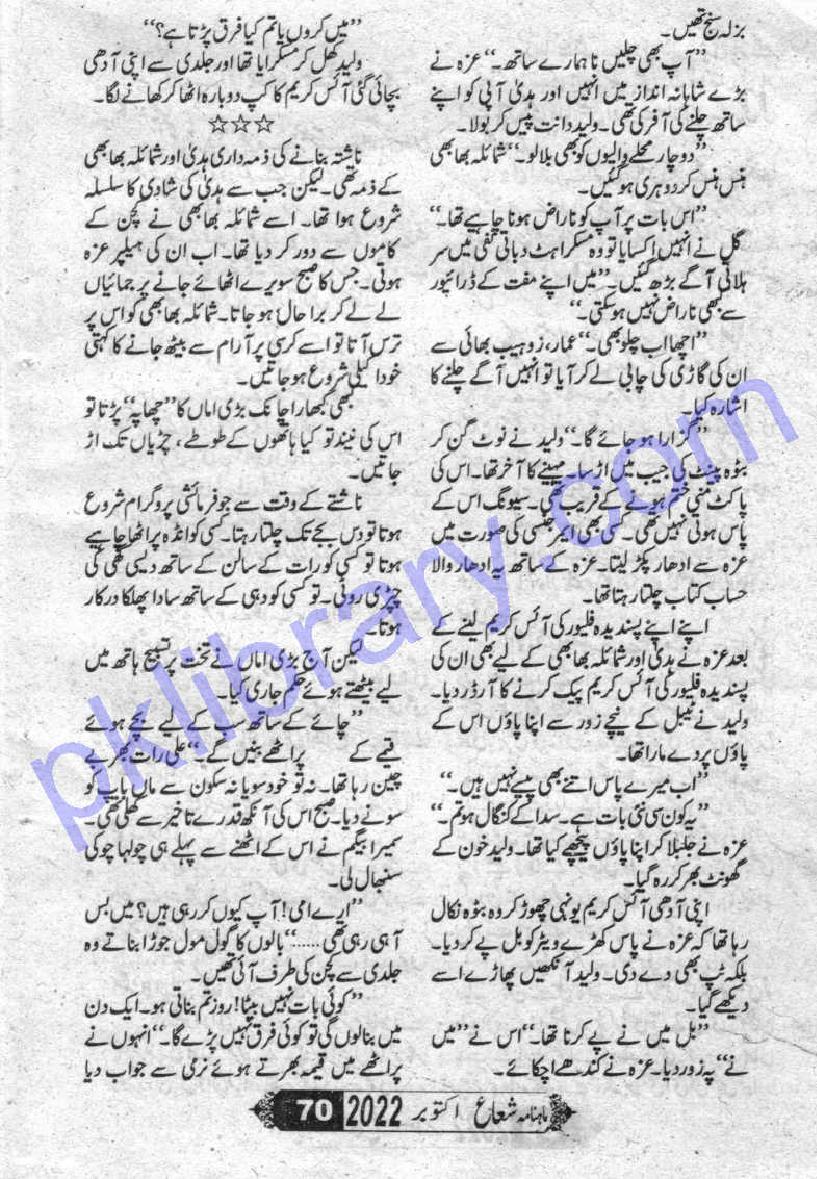 بزلہ سنج تھیں۔
”آپ بھی چلیں نا ہمارے ساتھ۔“ عزہ نے
بڑے شاہانہ انداز میں انہیں اور ہدیٰ آپی کو اپنے
ساتھ چلنے کی آفر کی تھی۔ ولید دانت پیس کر بولا۔
”دو چار محلے والیوں کو بھی بلا لو۔“ شمائلہ بھابھی
ہنس ہنس کر دوہری ہو گئیں۔
”اس بات پر آپ کو ناراض ہونا چاہیے تھا۔“
گل نے انہیں اکسایا تو وہ مسکراہٹ دباتی نفی میں سر
ہلاتی آگے بڑھ گئیں۔ ”میں اپنے مفت کے ڈرائیور
سے بھی ناراض نہیں ہو سکتی۔“
”اچھا اب چلو بھی۔“ عمار، زوہیب بھائی سے
ان کی گاڑی کی چابی لے کر آیا تو انہیں آگے چلنے کا
اشارہ کیا۔
”گزارا ہو جائے گا۔“ ولید نے نوٹ گن کر
بٹوہ پینٹ کی جیب میں اڑسا۔ مہینے کا آخر تھا۔ اس کی
پاکٹ منی ختم ہونے کے قریب تھی۔ سیونگ اس کے
پاس ہوتی نہیں تھی۔ کسی بھی ایمرجنسی کی صورت میں
عزہ سے ادھار پکڑ لیتا۔ عزہ کے ساتھ یہ ادھار والا
حساب کتاب چلتا رہتا تھا۔
اپنے اپنے پسندیدہ فلیور کی آئس کریم لینے کے
بعد عزہ نے ہدیٰ اور شمائلہ بھابھی کے لیے بھی ان کی
پسندیدہ فلیور کی آئس کریم پیک کرنے کا آرڈر دیا۔
ولید نے ٹیبل کے نیچے زور سے اپنا پاؤں اس کے
پاؤں پر دے مارا تھا۔
”اب میرے پاس اتنے بھی پیسے نہیں ہیں۔“
”یہ کون سی نئی بات ہے۔ سدا کے کنگال ہو تم۔“
عزہ نے جلبلا کر اپنا پاؤں پیچھے کیا تھا۔ ولید خون کے
گھونٹ بھر کر رہ گیا۔
اپنی آدھی آئس کریم یونہی چھوڑ کر وہ بٹوہ نکال
رہا تھا کہ عزہ نے پاس کھڑے ویٹر کو بل پے کر دیا۔
بلکہ ٹپ بھی دے دی۔ ولید آنکھیں پھاڑے اسے
دیکھے گیا۔
”بل میں نے پے کرنا تھا۔“ اس نے ”میں
نے“ پہ زور دیا۔ عزہ نے کندھے اچکائے۔
”میں کروں یا تم کیا فرق پڑتا ہے؟“
ولید کھل کر مسکرایا تھا اور جلدی سے اپنی آدھی
بچائی گئی آئس کریم کا کپ دوبارہ اٹھا کر کھانے لگا۔
☆☆☆
ناشتہ بنانے کی ذمہ داری ہدیٰ اور شمائلہ بھابھی
کے ذمہ تھی۔ لیکن جب سے ہدیٰ کی شادی کا سلسلہ
شروع ہوا تھا۔ اسے شمائلہ بھابھی نے کچن کے
کاموں سے دور کر دیا تھا۔ اب ان کی ہیلپر عزہ
ہوتی۔ جس کا صبح سویرے اٹھائے جانے پر جمائیاں
لے لے کر برا حال ہو جاتا۔ شمائلہ بھابھی کو اس پر
ترس آتا تو اسے کرسی پر آرام سے بیٹھ جانے کا کہتی
خود اکیلی شروع ہو جاتیں۔
کبھی کبھار اچانک بڑی اماں کا ”چھاپہ“ پڑتا تو
اس کی نیند تو کیا ہاتھوں کے طوطے، چڑیاں تک اڑ
جاتیں۔
ناشتے کے وقت سے جو فرمائشی پروگرام شروع
ہوتا تو دس بجے تک چلتا رہتا۔ کسی کو انڈہ پراٹھا چاہیے
ہوتا تو کسی کو رات کے سالن کے ساتھ دیسی گھی کی
چپڑی روٹی۔ تو کسی کو دہی کے ساتھ سادا پھلکا درکار
ہوتا۔
لیکن آج بڑی اماں نے تخت پر تسبیح ہاتھ میں
لیے بیٹھتے ہوئے حکم جاری کیا۔
”چائے کے ساتھ سب کے لیے بچے ہوئے
قیمے کے پراٹھے بنیں گے۔“ علی رات بھر بے
چین رہا تھا۔ نہ تو خود سویا نہ سکون سے ماں باپ کو
سونے دیا۔ صبح اس کی آنکھ قدرے تاخیر سے کھلی تھی۔
سمیرا بیگم نے اس کے اٹھنے سے پہلے ہی چولہا چوکی
سنبھال لی۔
”ارے امی! آپ کیوں کر رہی ہیں؟ میں بس
آ ہی رہی تھی ......“ بالوں کا گول مول جوڑا بناتے وہ
جلدی سے کچن کی طرف آئی تھیں۔
”کوئی بات نہیں بیٹا! روز تم بناتی ہو۔ ایک دن
میں بنا لوں گی تو کوئی فرق نہیں پڑے گا۔“ انہوں نے
پراٹھے میں قیمہ بھرتے ہوئے نرمی سے جواب دیا
ماہنامہ شعاع اکتوبر 2022 70
pklibrary.com